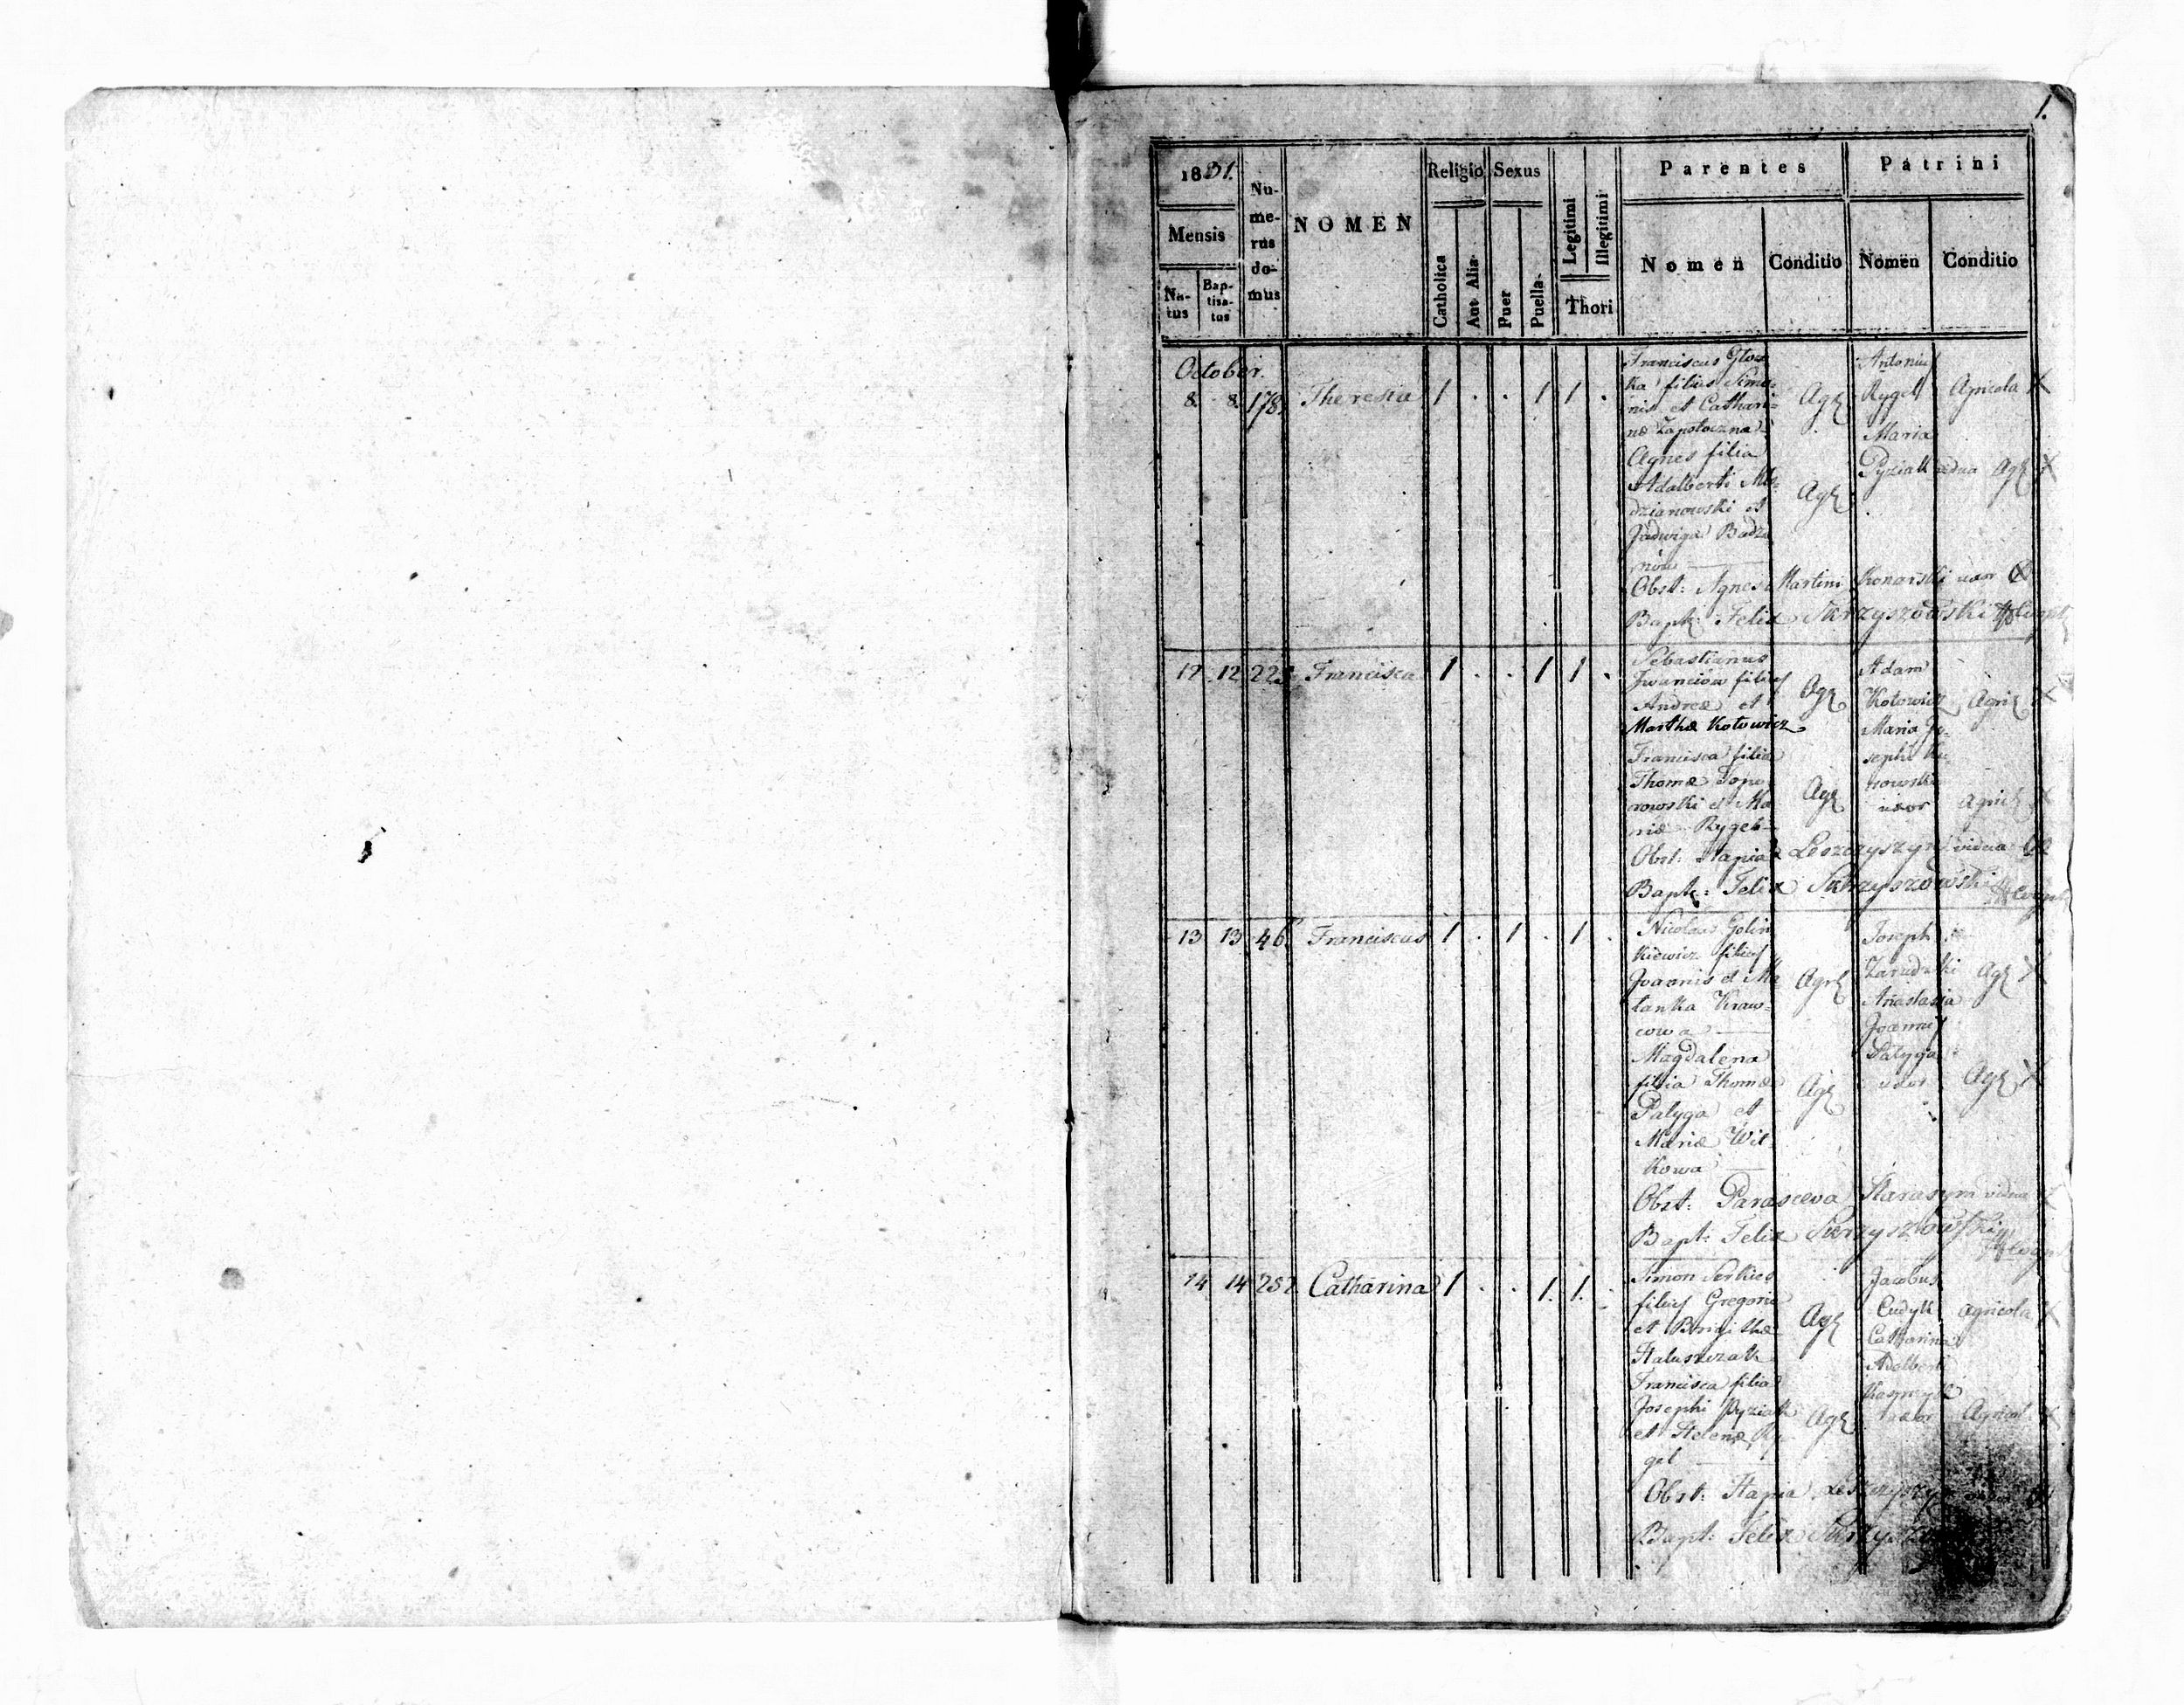 1.
1831.
Mensis
Na-
tus
Bap-
tisa-
tus
Nu-
me-
rus
do-
mus
NOMEN
Religio
Catholica
Aut Alia
Sexus
Puer
Puella
Legitimi
Illegitimi
Thori
Parentes
Nomen
Conditio
Patrini
Nomen
Conditio
October.
8. 8. 178. Theresia 1 . . 1 1 .
Franciscus
ka filius Simo-
nis et Cathari-
næ Zapoloczna
Agnes filia
Adalberti
dzianowski et
Jadwiga
Agr
Agr
Antonius
Rygel Agricola X
Maria
Pyziak vidua Agr X
Obst: Agnes Martini Konarski uxor X
Bapt: Felix Skrzyszowski
12 12 22 Francisca 1 . . 1 1 .
Sebastianus
Iwanciow filius
Andreæ et
Marthæ Kotowicz
Francisca filia
Thomæ Topo
rowski et Ma
riæ Rygel
Agr
Agr
Adam
Kotowicz Agri X
Maria Jo-
sephi
uxor Agric X
Obst: Hapia Leszczyszyn vidua
Bapt: Felix Skrzyszowski
13 13 46. Franciscus 1 . 1 . 1 .
Nicolaus Golin
kiewicz filius
Joannis et Me
lanka Kraw-
cowa
Magdalena
filia Thomæ
Palyga et
Mariæ Wil
kowa
Agr
Agr
Joseph
Zarudzki Agr X
Anastasia
Joannis
Palyga
uxor Agr X
Obst: Parasceva Harasym vidua X
Bapt: Felix Skrzyszowski
14 14 252 Catharina 1 . . 1. 1. .
Simon Serkies
filius Gregorii
et Brigithæ
Haluszczak
Francisca filia
Josephi Pyziak
et Helenæ Ry
gel
Agr
Agr
Jacobus
Cudyk Agricola X
Catharina
Adalberti
uxor Agricol X
Obst: Hapia Leszczyszyn
Bapt: Felix